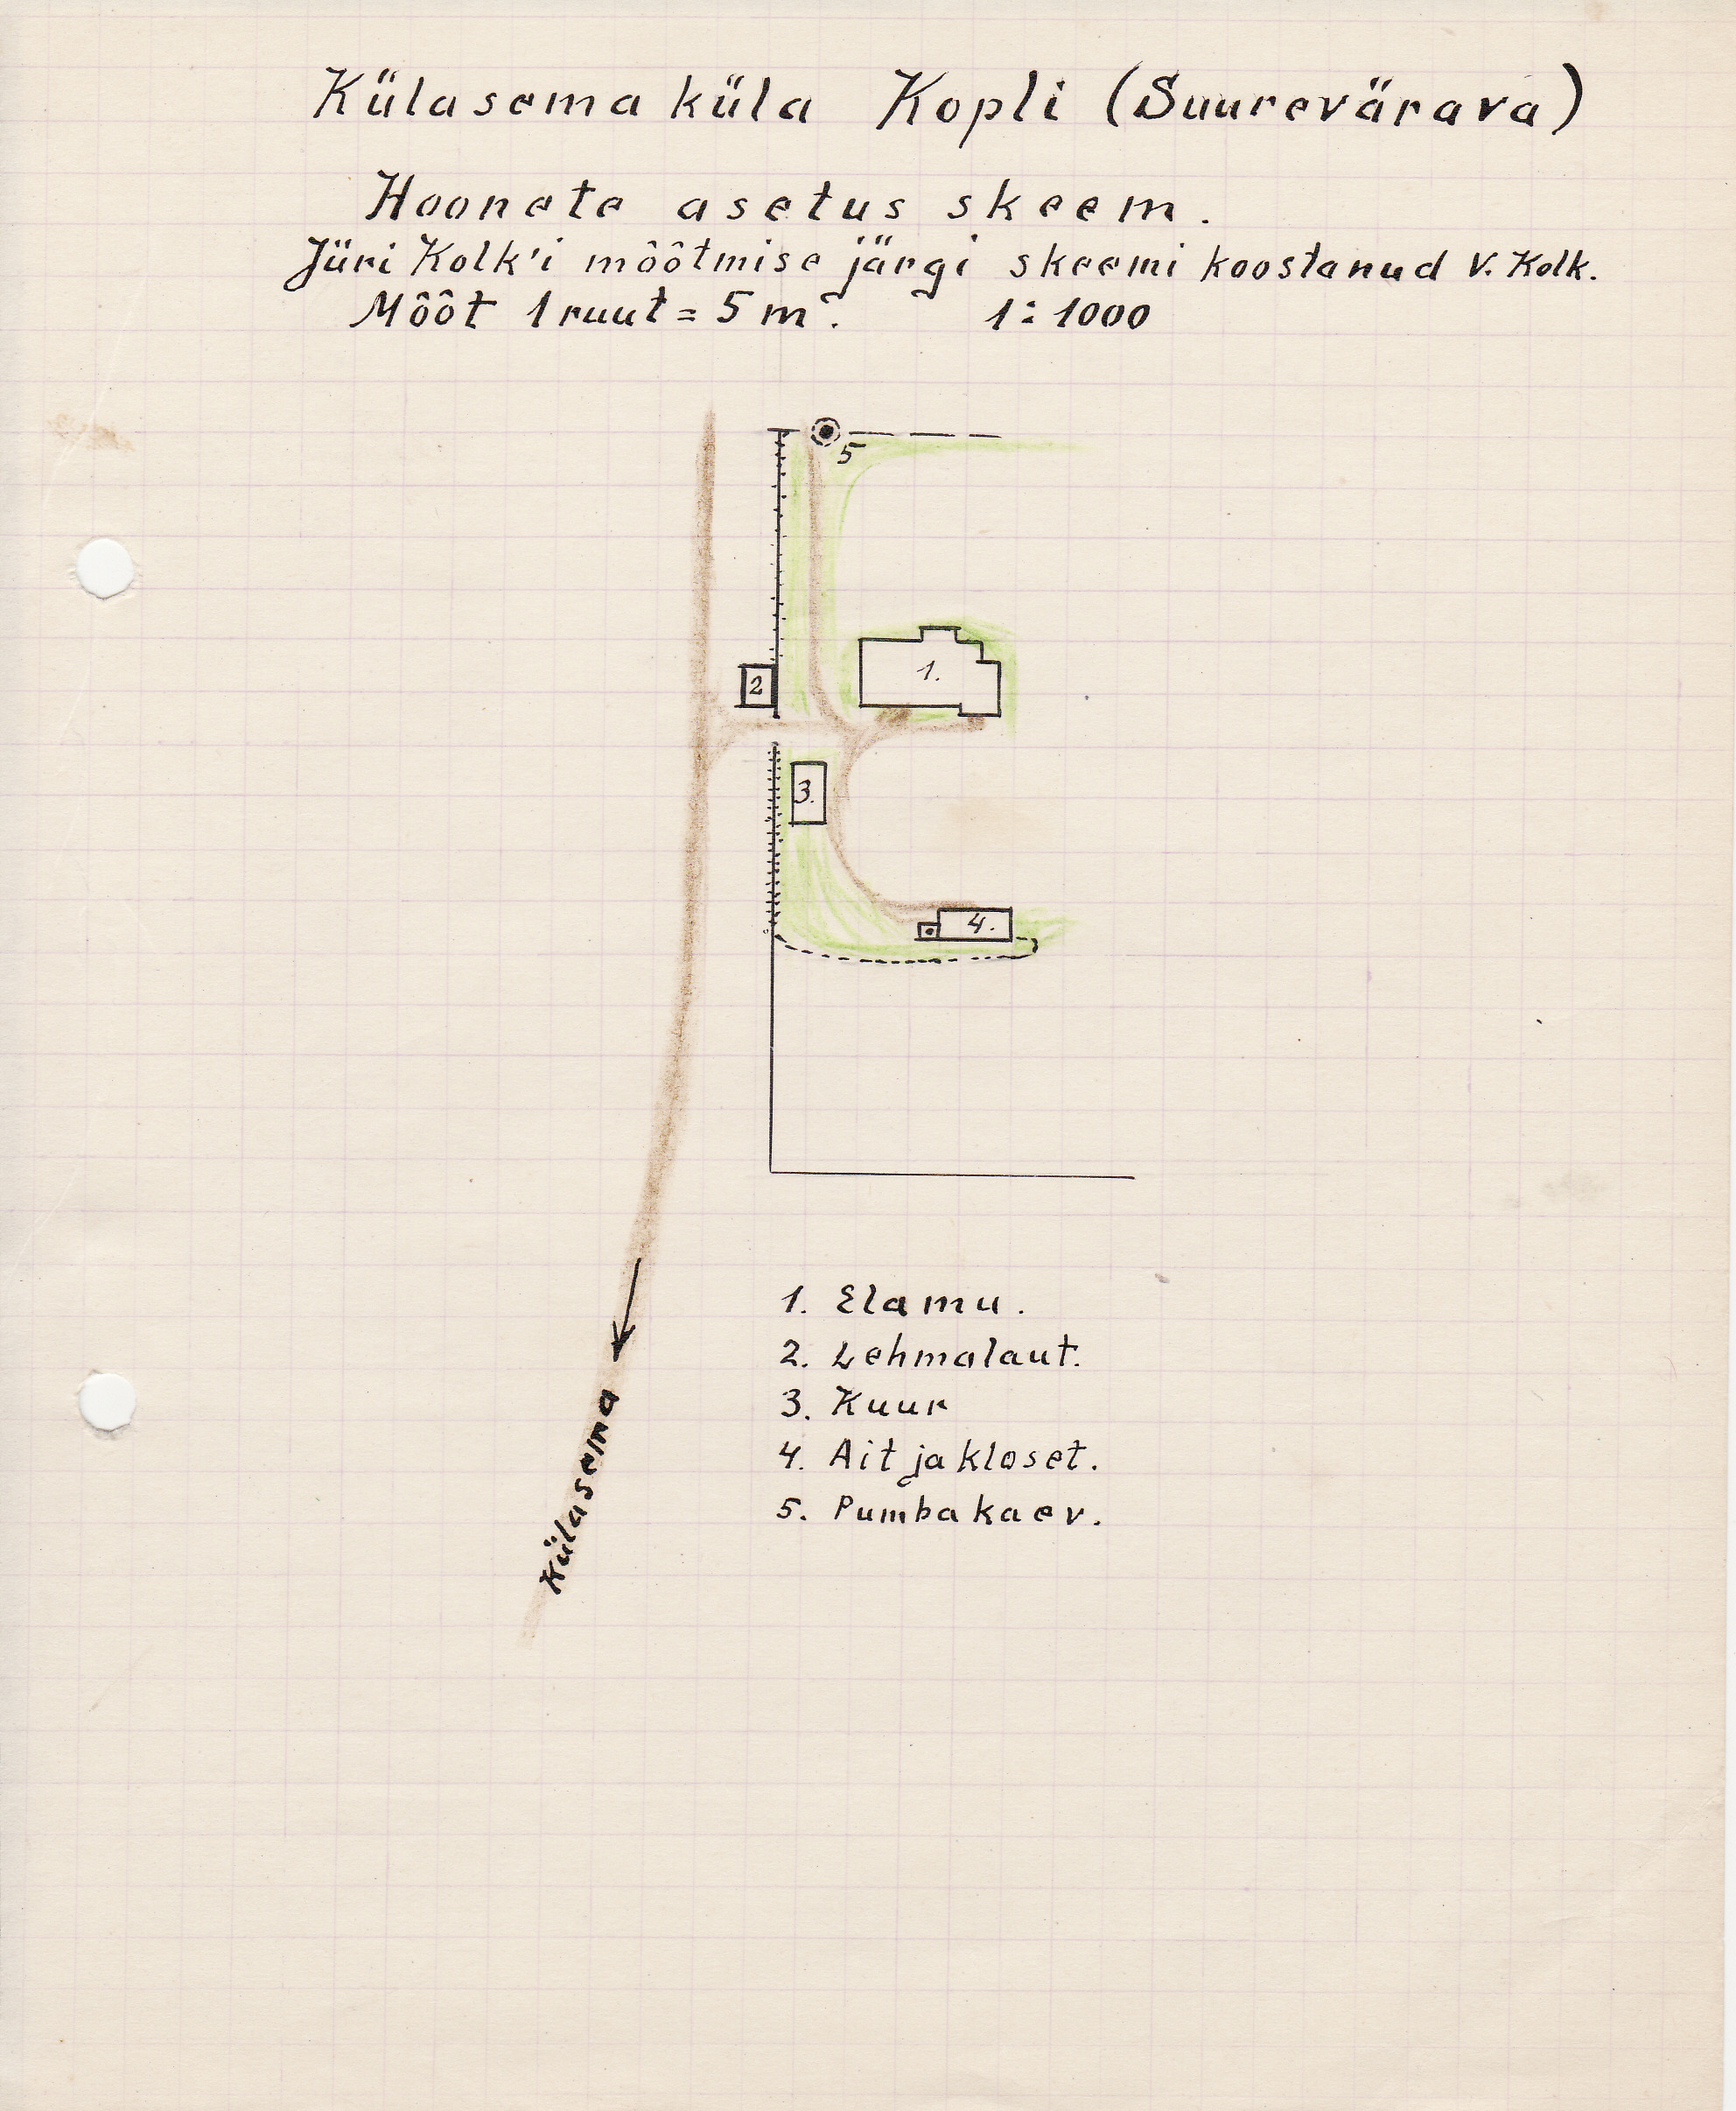 Külasema küla Kopli (Suurevärava)
Hoonete asetus skeem.
Jüri Kolk'i mõõtmise järgi skeemi koostanud V. Kolk.
Mõõt 1 ruut = 5 m². 1:1000
5
1.
2
3.
4.
1. Elamu.
2. Lehmalaut.
3. Kuur
4. Ait ja kloset.
5. Pumbakaev.
Külasema